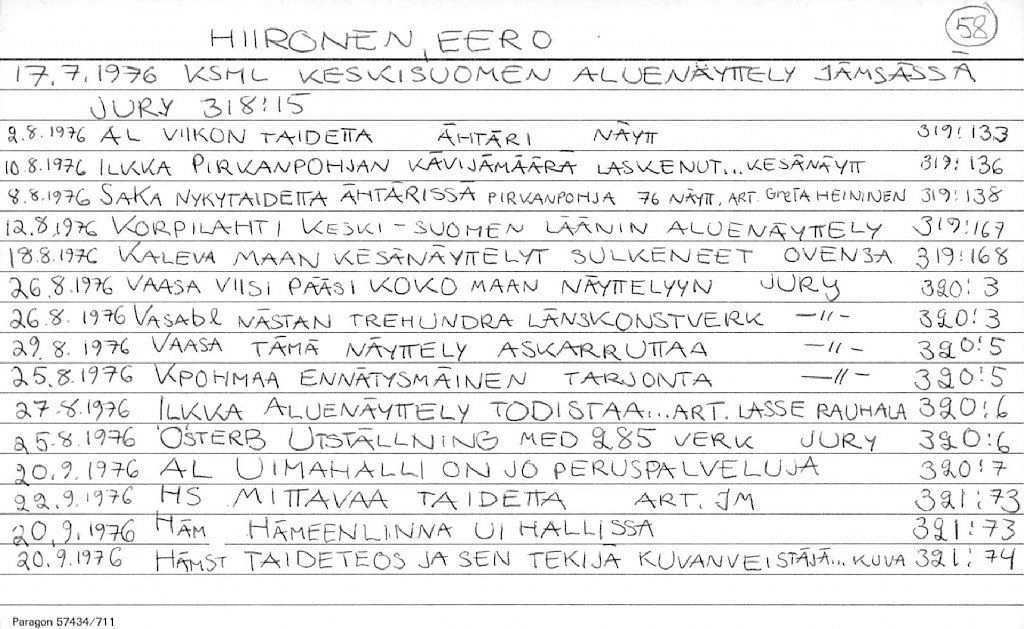 HIIRONEN, EERO 58
17.7.1976 KSML KESKISUOMEN ALUENÄYTTELY JÄMSÄSSÄ
JURY 318:15
2.8.1976 AL VIIKON TAIDETTA ÄHTÄRI NÄYTT 319:133
10.8.1976 ILKKA PIRKANPOHJAN KÄVIJÄMÄÄRÄ LASKENUT... KESÄNÄYTT 319:136
8.8.1976 SAKA NYKYTAIDETTA ÄHTÄRISSÄ PIRKANPOHJA 76 NÄYTT, ART. GRETA HEININEN 319:138
12.8.1976 KORPILAHTI KESKI-SUOMEN LÄÄNIN ALUENÄYTTELY 319:167
18.8.1976 KALEVA MAAN KESÄNÄYTTELYT SULKENEET OVENSA 319:168
26.8.1976 VAASA VIISI PÄÄSI KOKO MAAN NÄYTTELYYN JURY 320:3
26.8.1976 VASABL NÄSTAN TREHUNDRA LÄNSKONSTVERK -"- 320:3
29.8.1976 VAASA TÄMÄ NÄYTTELY ASKARRUTTAA -"- 320:5
25.8.1976 KPOHMAA ENNÄTYSMÄINEN TARJONTA -"- 320:5
27.8.1976 ILKKA ALUENÄYTTELY TODISTAA... ART. LASSE RAUHALA 320:6
25.8.1976 ÖSTERB UTSTÄLLNING MED 285 VERK JURY 320:6
20.9.1976 AL UIMAHALLI ON JO PERUSPALVELUJA 320:7
22.9.1976 HS MITTAVAA TAIDETTA ART. JM 321:73
20.9.1976 HÄM HÄMEENLINNA UI HALLISSA 321:73
20.9.1976 HÄMST TAIDETEOS JA SEN TEKIJÄ KUVANVEISTÄJÄ... KUVA 321:74
Paragon 57434/711